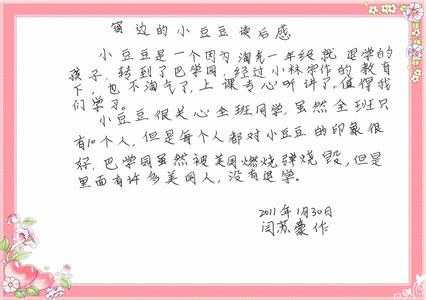 窗边的小豆豆读后感
小豆豆是一个因为淘气一年级就退学的
孩子，转到了巴学园，经过小林宗作的教育
下，也不淘气了，上课专心听讲了，值得我
们学习。
小豆豆很关心全班同学，虽然全班只
有10个人，但是每个人都对小豆豆的印象很
好，巴学园虽然被美国燃烧弹烧毁，但是
里面有许多美国人，没有退学。
2011年1月30日
闫苏豪作